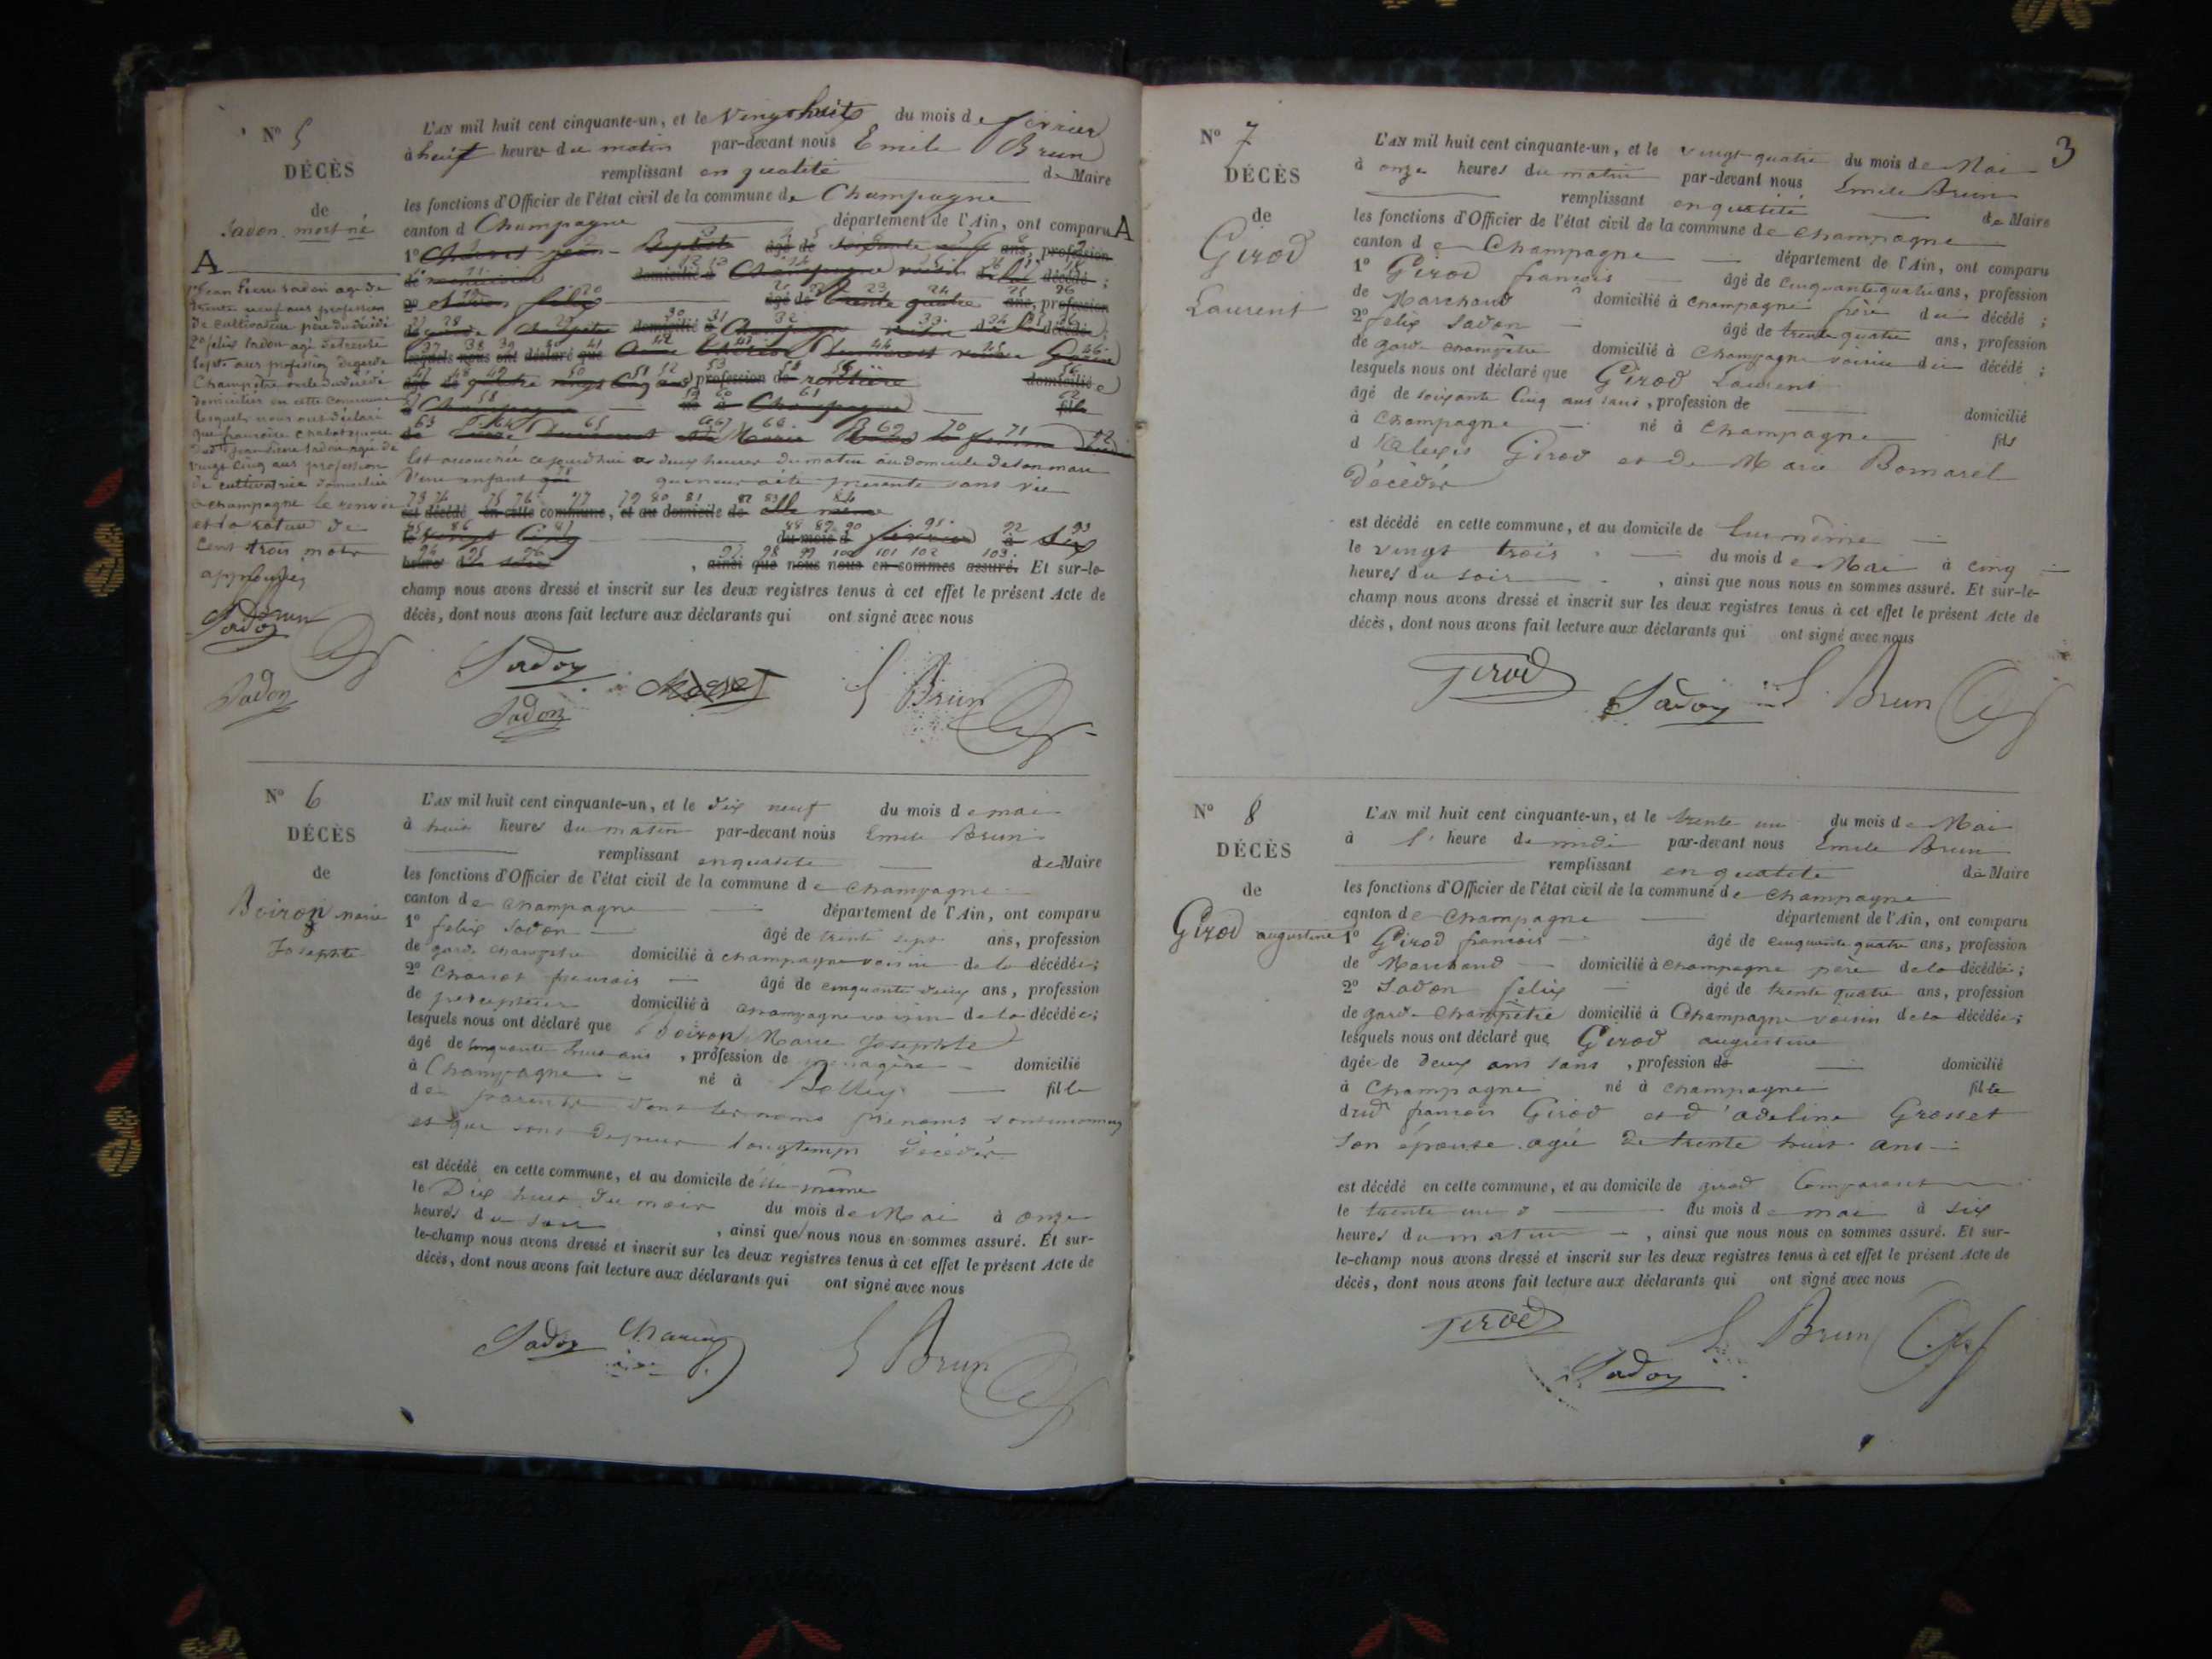 N° 5
DÉCÈS
de
Sadon mort né
A
1° Jean Pierre Sadon agé de
trente neuf ans profession
de cultivateur père du décédé
2° félix Sadon agé de trente
sept ans profession de garde
Champêtre oncle du décédé
domiciliés en cette commune
lesquels nous ont déclaré
que françoise
dudit Jean Pierre Sadon agée de
vingt cinq ans profession
de cultivatrice domiciliée
à champagne le renvoi
et la rature de
cent trois mots
approuvés
Sadon Brun
Sadon
L'AN mil huit cent cinquante-un, et le Vingt huit du mois de février
à huit heures du matin par-devant nous Emile Brun
remplissant en qualité de Maire
les fonctions d'Officier de l'état civil de la commune de Champagne
canton d Champagne département de l'Ain, ont comparu A
1° Jean Baptiste âgé de soixante neuf ans, profession
de domicilié à Champagne voisin de la décédé ;
2° Sadon félix âgé de trente quatre ans, profession
de garde champêtre domicilié à Champagne voisin de la décédé ;
lesquels nous ont déclaré que
âgé de quatre vingt cinq ans profession de rentière domicilié
à Champagne né à Champagne fille
de Marie
Est accouchée ce jourd'hui à deux heures du matin au domicile de son mari
d'une enfant qui nous a été présenté sans vie
est décédé en cette commune, et au domicile de elle même
le vingt cinq du mois d février à six
heures du soir , ainsi que nous nous en sommes assuré. Et sur-le-
champ nous avons dressé et inscrit sur les deux registres tenus à cet effet le présent Acte de
décès, dont nous avons fait lecture aux déclarants qui ont signé avec nous
Sadon
Sadon
E Brun
N° 6
DÉCÈS
de
Boiron marie
Josephte
L'AN mil huit cent cinquante-un, et le dix neuf du mois de mai
à huit heures du matin par-devant nous Emile Brun
remplissant en qualité de Maire
les fonctions d'Officier de l'état civil de la commune de champagne
canton de champagne département de l'Ain, ont comparu
1° felix Sadon âgé de trente sept ans, profession
de garde champetre domicilié à champagne voisin de la décédée ;
2° francois âgé de cinquante deux ans, profession
de percepteur domicilié à champagne voisin de la décédée ;
lesquels nous ont déclaré que Boiron Marie Josephte
âgé de cinquante huit ans , profession de menagère domicilié
à Champagne né à Belley fille
de parents dont les noms prenoms sont inconnus
et que sont depuis longtemps décédés
est décédé en cette commune, et au domicile de elle même
le Dix huit du mois du mois de Mai à onze
heures du soir , ainsi que nous nous en sommes assuré. Et sur-
le-champ nous avons dressé et inscrit sur les deux registres tenus à cet effet le présent Acte de
décès, dont nous avons fait lecture aux déclarants qui ont signé avec nous
Sadon
E Brun
3
N° 7
DÉCÈS
de
Girod
Laurent
L'AN mil huit cent cinquante-un, et le vingt quatre du mois de Mai
à onze heures du matin par-devant nous Emile Brun
remplissant en qualité de Maire
les fonctions d'Officier de l'état civil de la commune de champagne
canton de Champagne département de l'Ain, ont comparu
1° Girod françois âgé de cinquante quatre ans, profession
de Marchand domicilié à champagne frère du décédé ;
2° felix Sadon âgé de trente quatre ans, profession
de garde champêtre domicilié à Champagne voisin du décédé ;
lesquels nous ont déclaré que Girod Laurent
âgé de soixante cinq ans sans , profession de domicilié
à Champagne né à Champagne fils
d'Alexis Girod et de Marie Bomarel
décédés
est décédé en cette commune, et au domicile de lui même
le vingt trois du mois de Mai à cinq
heures du soir , ainsi que nous nous en sommes assuré. Et sur-le-
champ nous avons dressé et inscrit sur les deux registres tenus à cet effet le présent Acte de
décès, dont nous avons fait lecture aux déclarants qui ont signé avec nous
Girod
Sadon E Brun
N° 8
DÉCÈS
de
Girod augustine
L'AN mil huit cent cinquante-un, et le trente un du mois de Mai
à l' heure de midi par-devant nous Emile Brun
remplissant en qualité de Maire
les fonctions d'Officier de l'état civil de la commune de champagne
canton de Champagne département de l'Ain, ont comparu
1° Girod francois âgé de cinquante quatre ans, profession
de Marchand domicilié à champagne père de la décédée ;
2° Sadon felix âgé de trente quatre ans, profession
de garde Champêtre domicilié à Champagne voisin de la décédée ;
lesquels nous ont déclaré que Girod augustine
âgée de deux ans sans , profession de domicilié
à Champagne né à champagne fille
dud françois Girod et d'adeline Grosset
son épouse agée de trente huit ans
est décédé en cette commune, et au domicile de girod Comparant
le trente un du mois de mai à six
heures du matin , ainsi que nous nous en sommes assuré. Et sur-
le-champ nous avons dressé et inscrit sur les deux registres tenus à cet effet le présent Acte de
décès, dont nous avons fait lecture aux déclarants qui ont signé avec nous
Girod
E Brun
Sadon